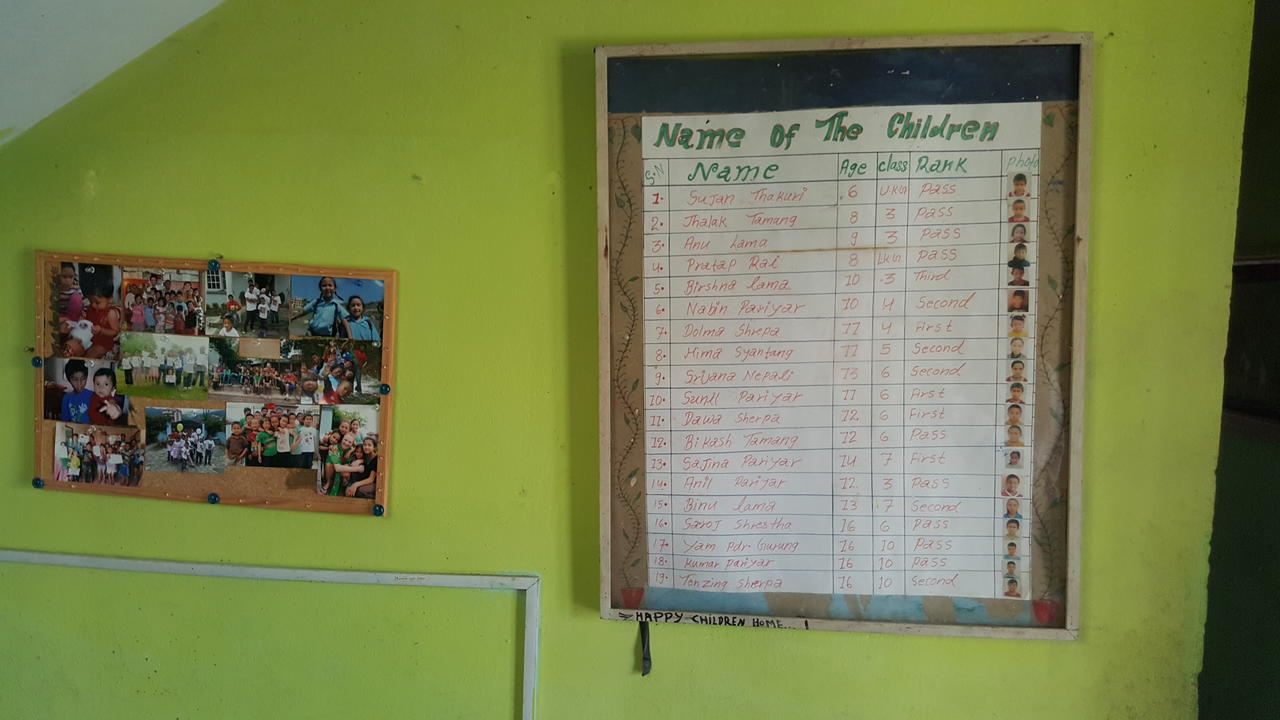 Name Of The Children
S.N Name Age class Rank Photo
1. Sujan Thakuri 6 U.KG Pass
2. Jhalak Tamang 8 3 Pass
3. Anu Lama 9 3 Pass
4. Pratap Rai 8 LKG Pass
5. Birshna lama 10 3 Third
6. Nabin Pariyar 10 4 Second
7. Dolma Shrepa 11 4 First
8. Hima Syantang 11 5 Second
9. Srijana Nepali 13 6 Second
10. Sunil Pariyar 11 6 First
11. Dawa Sherpa 12 6 First
12. Bikash Tamang 12 6 Pass
13. Sajina Pariyar 14 7 First
14. Anil Pariyar 12 3 Pass
15. Binu lama 13 7 Second
16. Saroj Shrestha 16 6 Pass
17. Yam Pdr. Gurung 16 10 Pass
18. Kumar Pariyar 16 10 Pass
19. Tenzing Sherpa 16 10 Second
HAPPY CHILDREN HOME...!